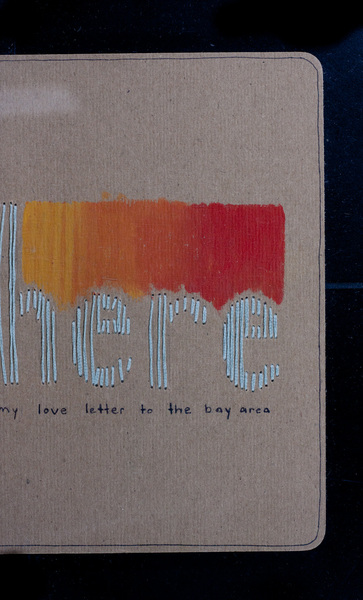 here
my love letter to the bay area